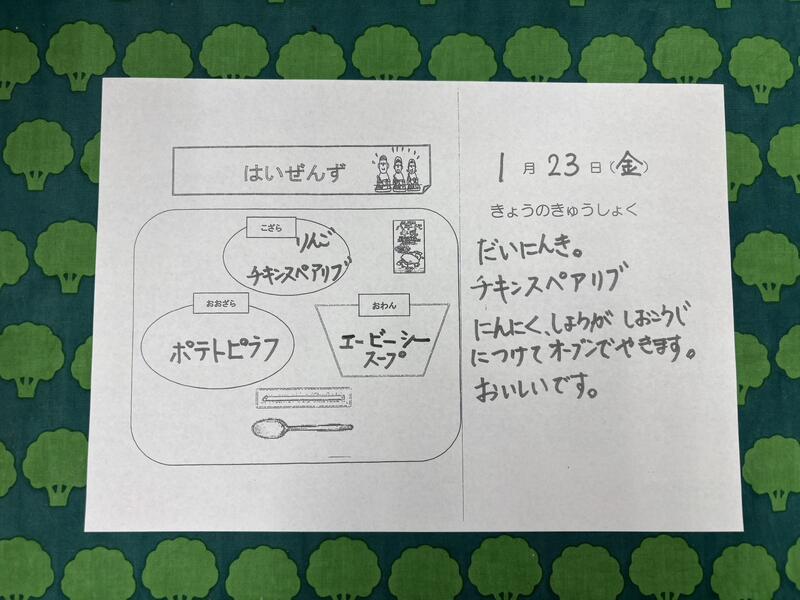 はいぜんず
こざら
りんご
チキンスペアリブ
おおざら
ポテトピラフ
おわん
エービーシー
スープ
1月23日(金)
きょうのきゅうしょく
だいにんき。
チキンスペアリブ
にんにく、しょうが しおこうじ
につけてオーブンでやきます。
おいしいです。